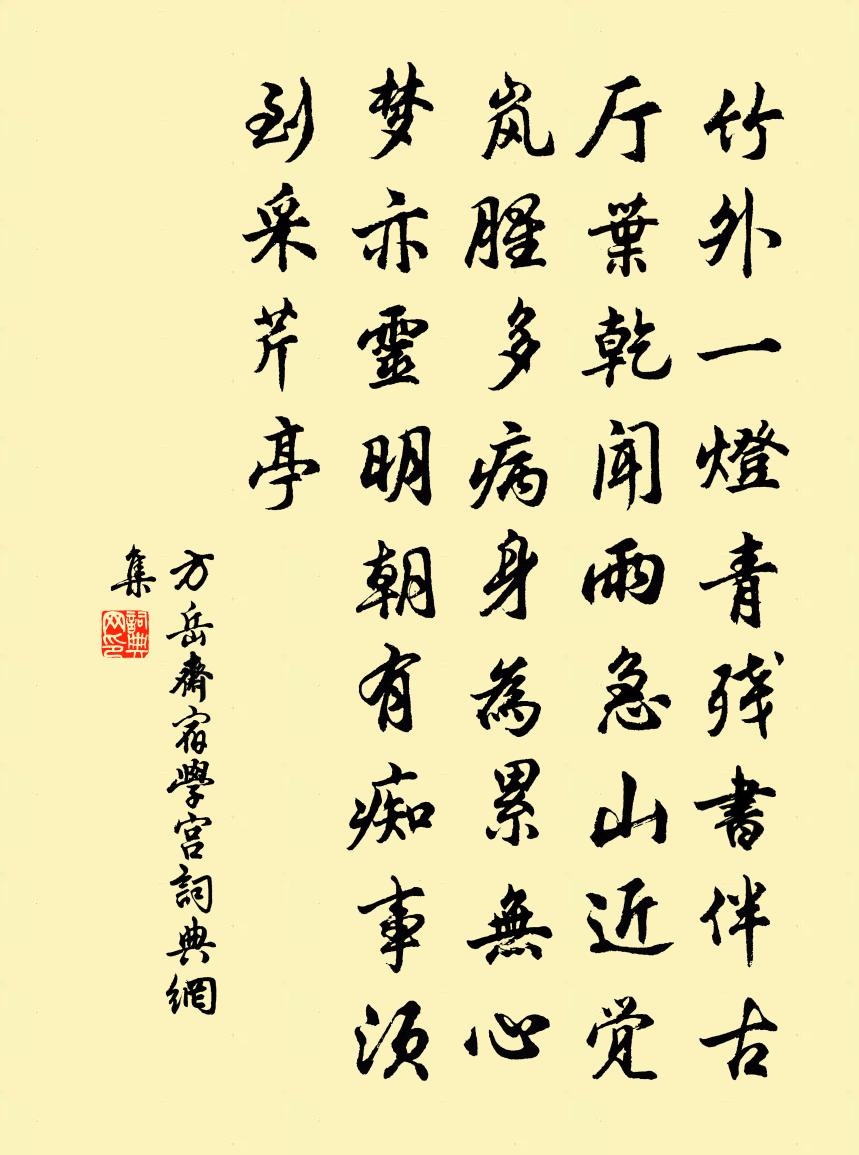 竹外一燈青残書伴古
厅葉乾闻雨急山近觉
岚腥多病身為累無心
梦亦靈明朝有痴事须
到采芹亭
方岳齋宿學宮詞典網
集
詞典
网印